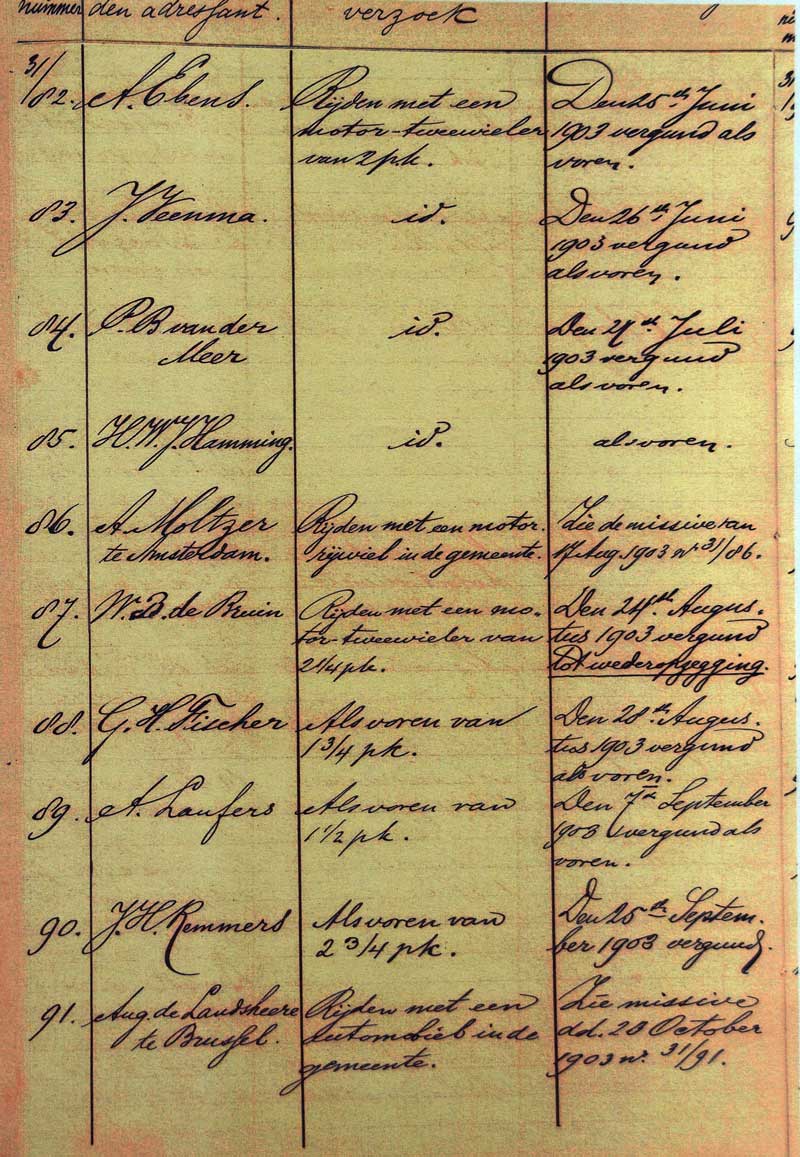 nummer den adressant. verzoek
31/82. A. Ebens. Rijden met een Den 25th Juni
motor-tweewieler 1903 vergund als
van 2 p.k. voren.
83. J. Veenma. id. Den 26th Juni
1903 vergund
als voren.
84. P. B van der id. Den Juli
Meer 1903 vergund
als voren.
85. H. W. J. Hamming. id. als voren.
86. A. Moltzer Rijden met een motor- Zie de missive van
te Amsterdam. rijwiel in de gemeente. 17 Aug. 1903 no 31/86.
87. W. B. de Bruin Rijden met een mo- Den 24th Augus-
tor-tweewieler van tus 1903 vergund
2 1/4 pk. tot wederopzegging.
88. G. H. Fischer Als voren van Den 28th Augus-
1 3/4 pk. tus 1903 vergund
als voren.
89. A. Laufers Als voren van Den 7th September
1 1/2 pk. 1903 vergund als
voren.
90. J. H. Remmers Als voren van Den 25th Septem-
2 3/4 pk. ber 1903 vergund.
91. Aug. de Landsheere Rijden met een Zie missive
te Brussel. automobiel in de dd. 28 October
gemeente. 1903 no. 31/91.